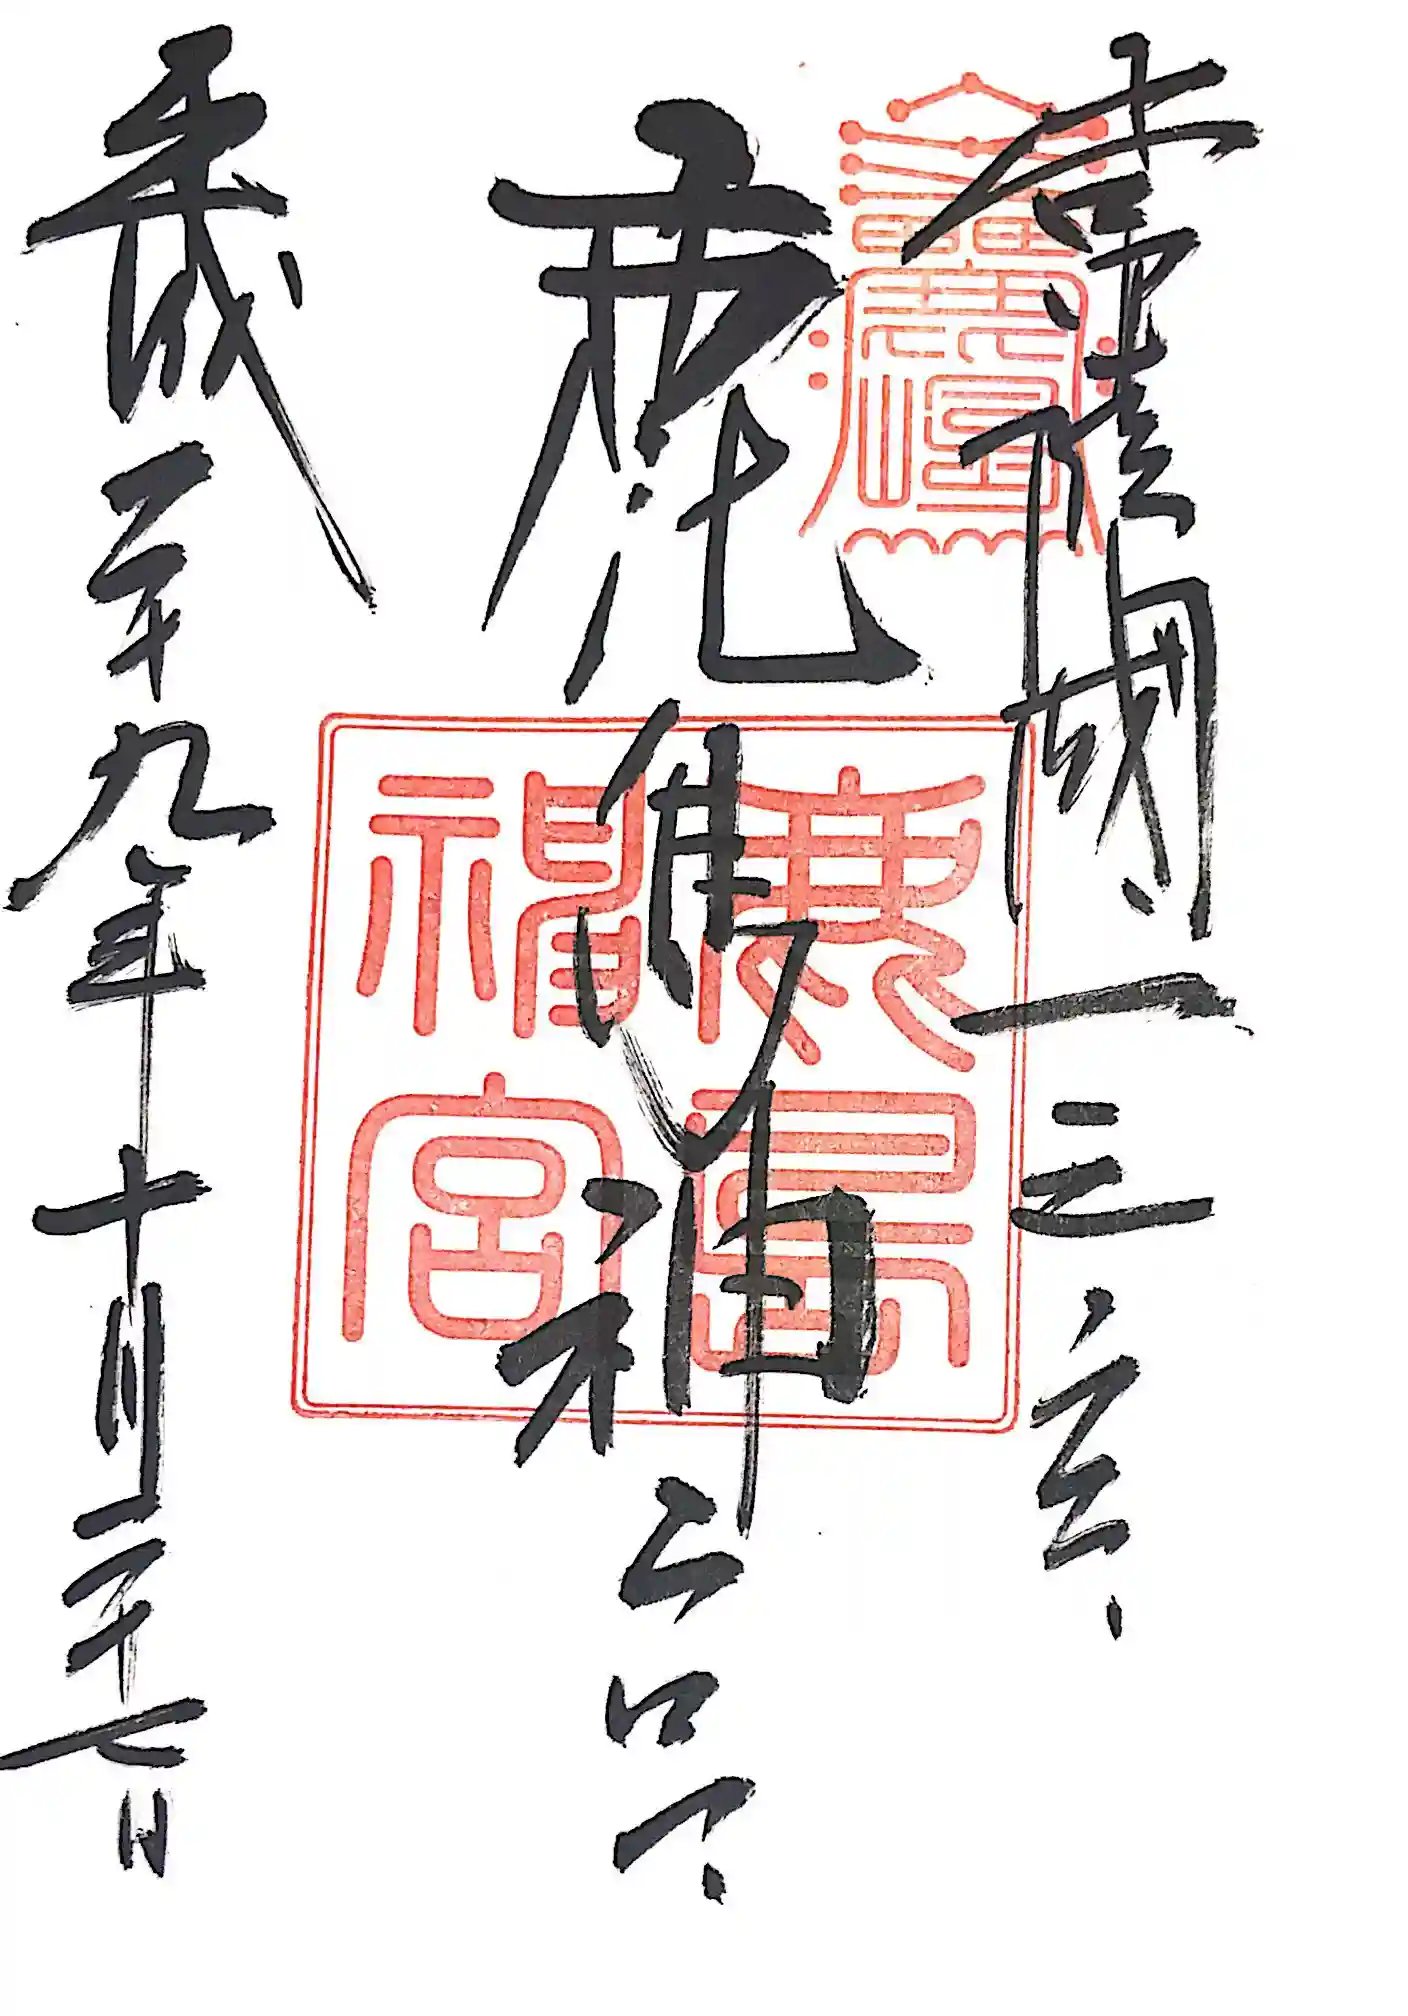 常陸國一之宮
鹿島神宮
平成二十九年十月二十七日
鹿島
神宮